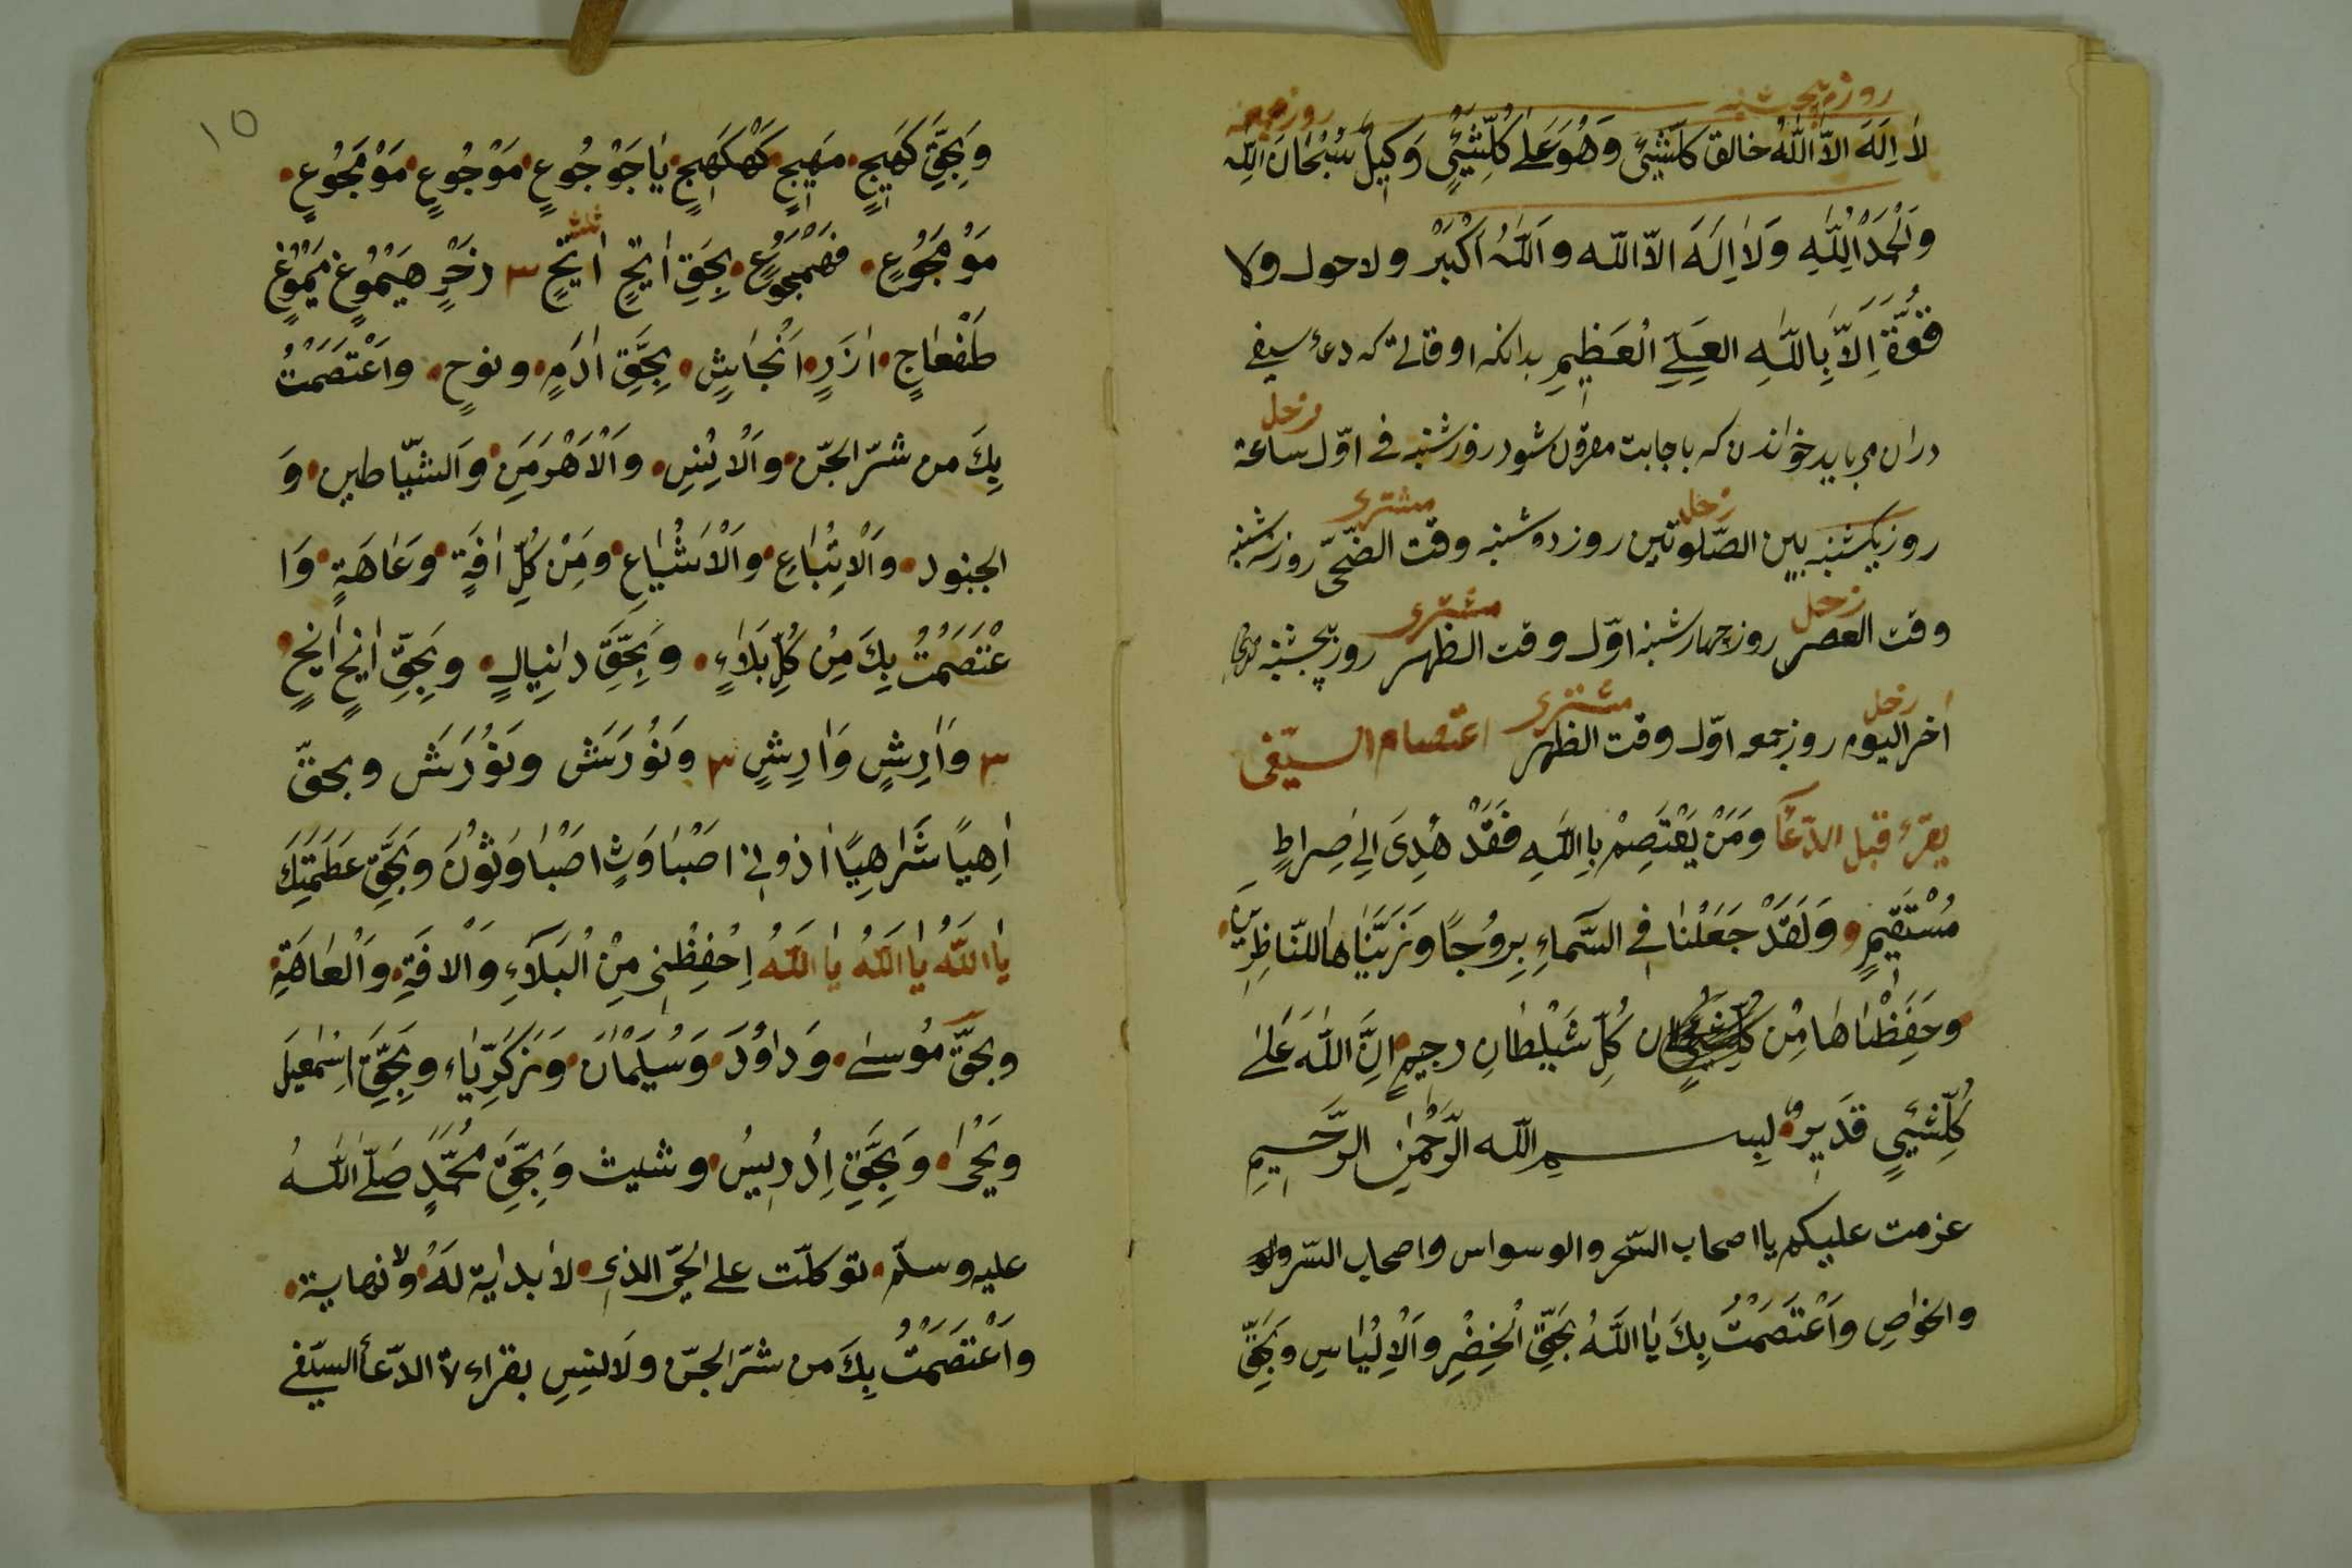 روز پنجشنبه روز جمعه
لاٰ اِلَهَ الاّ اللّٰهُ خالق كلّشئٍ وَهُوَ عَلٰى كُلِّشَيْئٍ وَكِيلٌ سُبْحَانَ اللّٰهِ
وَالْحَمْدُ لِلّٰهِ وَلاٰ اِلَهَ الاّ اللّه وَاللّٰهُ اَكْبَرْ ولا حول ولا
قُوَّةَ اِلاّ بِاللّٰهِ العَلِىِّ الْعَظِيمِ بدانکه اوقاتى که دعاء سيفى
دران مى بايد خواندن که باجابت مقرون شود روز شنبه فى اوّل ساعة زحل
روز يکشنبه بين الصّلوتين زحل روز دوشنبه وقت الضّحى مشترى روز سه شنبه
وقت العصر زحل روز چهارشنبه اوّل وقت الظهر مشترى روز پنجشنبه
اخر اليوم زحل روز جمعه اوّل وقت الظهر مشترى اعتصام السيّفى
يقرء قبل الدّعاء وَمَنْ يَعْتَصِمْ بِاللّٰهِ فَقَدْ هُدِىَ اِلىٰ صِراطٍ
مُسْتَقيمٍ وَلَقَدْ جَعَلْنا فى السَّمآءِ بُرُوجًا وَزَيَّنّاها لِلنّاظِرِينَ
وَحَفِظْناهَا مِنْ كُلِّ شَيْطانٍ رجيمٍ اِنَّ اللّٰهَ عَلىٰ
كُلِّشَيئٍ قَدِيرٌ بِسمِ اللّه الرَّحْمٰنِ الرَّحيمِ
عزمت عليكم يا اصحاب السّحر والوسواس واصحاب السّر
والخواصِ وَاَعْتَصَمْتُ بِكَ يٰا اَللّٰهُ بَحَقِّ الْخِضْرِ وَالْاِلْيٰاسِ وَبَحَقِّ
١٥
وَبِحَقِّ كَهيجٍ مَهيجٍ كَهْكَهيجٍ يٰاجَوْجُوعٍ مَوْجُوعٍ مَوْمَجُوعٍ
مَوْهَجُوعٍ فَصْمَجْوَعٍ بِحَقِّ اَيخٍ اَيخٍ ٣ رَخٍ هَيْمُوغٍ يَمْوُغٍ
طَفْعاجٍ ازَرٍ اَنْجَاشٍ بِحَقِّ ادَمٍ ونوحٍ وَاعْتَصَمْتُ
بِكَ من شرّ الجنّ وَالْاِنْسِ وَالْاَهْرَمَنِ وَالشّيّاطين وَ
الجنود وَالْاِتْبَاعِ وَالْاَشْيَاعِ وَمِنْ كُلِّ افَةٍ وَعَاهَةٍ وَا
عْتَصَمْتُ بِكَ مِنْ كُلِّ بَلَاءٍ وَبِحَقِّ دانِيالٍ وبَحِقِّ ايخٍ ايخٍ
٣ وَاٰرِشٍ وَاٰرِشٍ ٣ وَنَوُرَشَش وَنَوُرَشَش وبحقّ
اِهياً شَراهِيّاً اذونى اصْبَاوَثٍ اصْبَاوَثُونَ وَبَحِقِّ عَظَمَتِكَ
يٰا اللّٰهُ يٰا اللّٰهُ يٰا اللّٰهُ اِحْفِظْنِى مِنْ الْبَلَآءِ وَالْافَةِ وَالْعٰاهَةِ
وبحَقِّ مُوسىٰ وَدٰاوُدَ وَسُلَيْمٰانَ وَزَكَرِيّاء وَبِحَقِّ اِسْمٰعيلَ
ويَحْيٰا وَبِحَقِّ اِدْرِيسُ وشيث وَبِحَقِّ مُحَمَّدٍ صَلّى اللّٰهُ
عليه وسلّم توكلّت على الحَىّ الذى لاٰ بداية لَهُ ولا نهاية
وَاَعْتَصَمْتُ بِكَ من شرّ الجنّ وَلانسِ بقراءة الدّعأ السيّفى